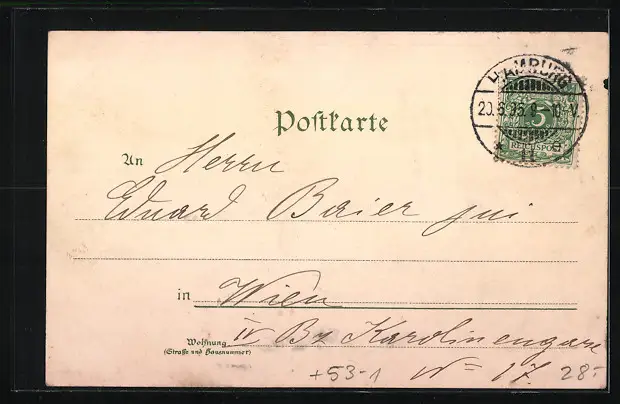 HAMBURG
20.6.96. 8-10 V.
* 11 e
5
REICHSPOST
Postkarte
An Herrn
Eduard Baier jui
in Wien
Wohnung
(Straße und Hausnummer)
IV Bz Karolinengasse
N= 17.
+53-1
28-